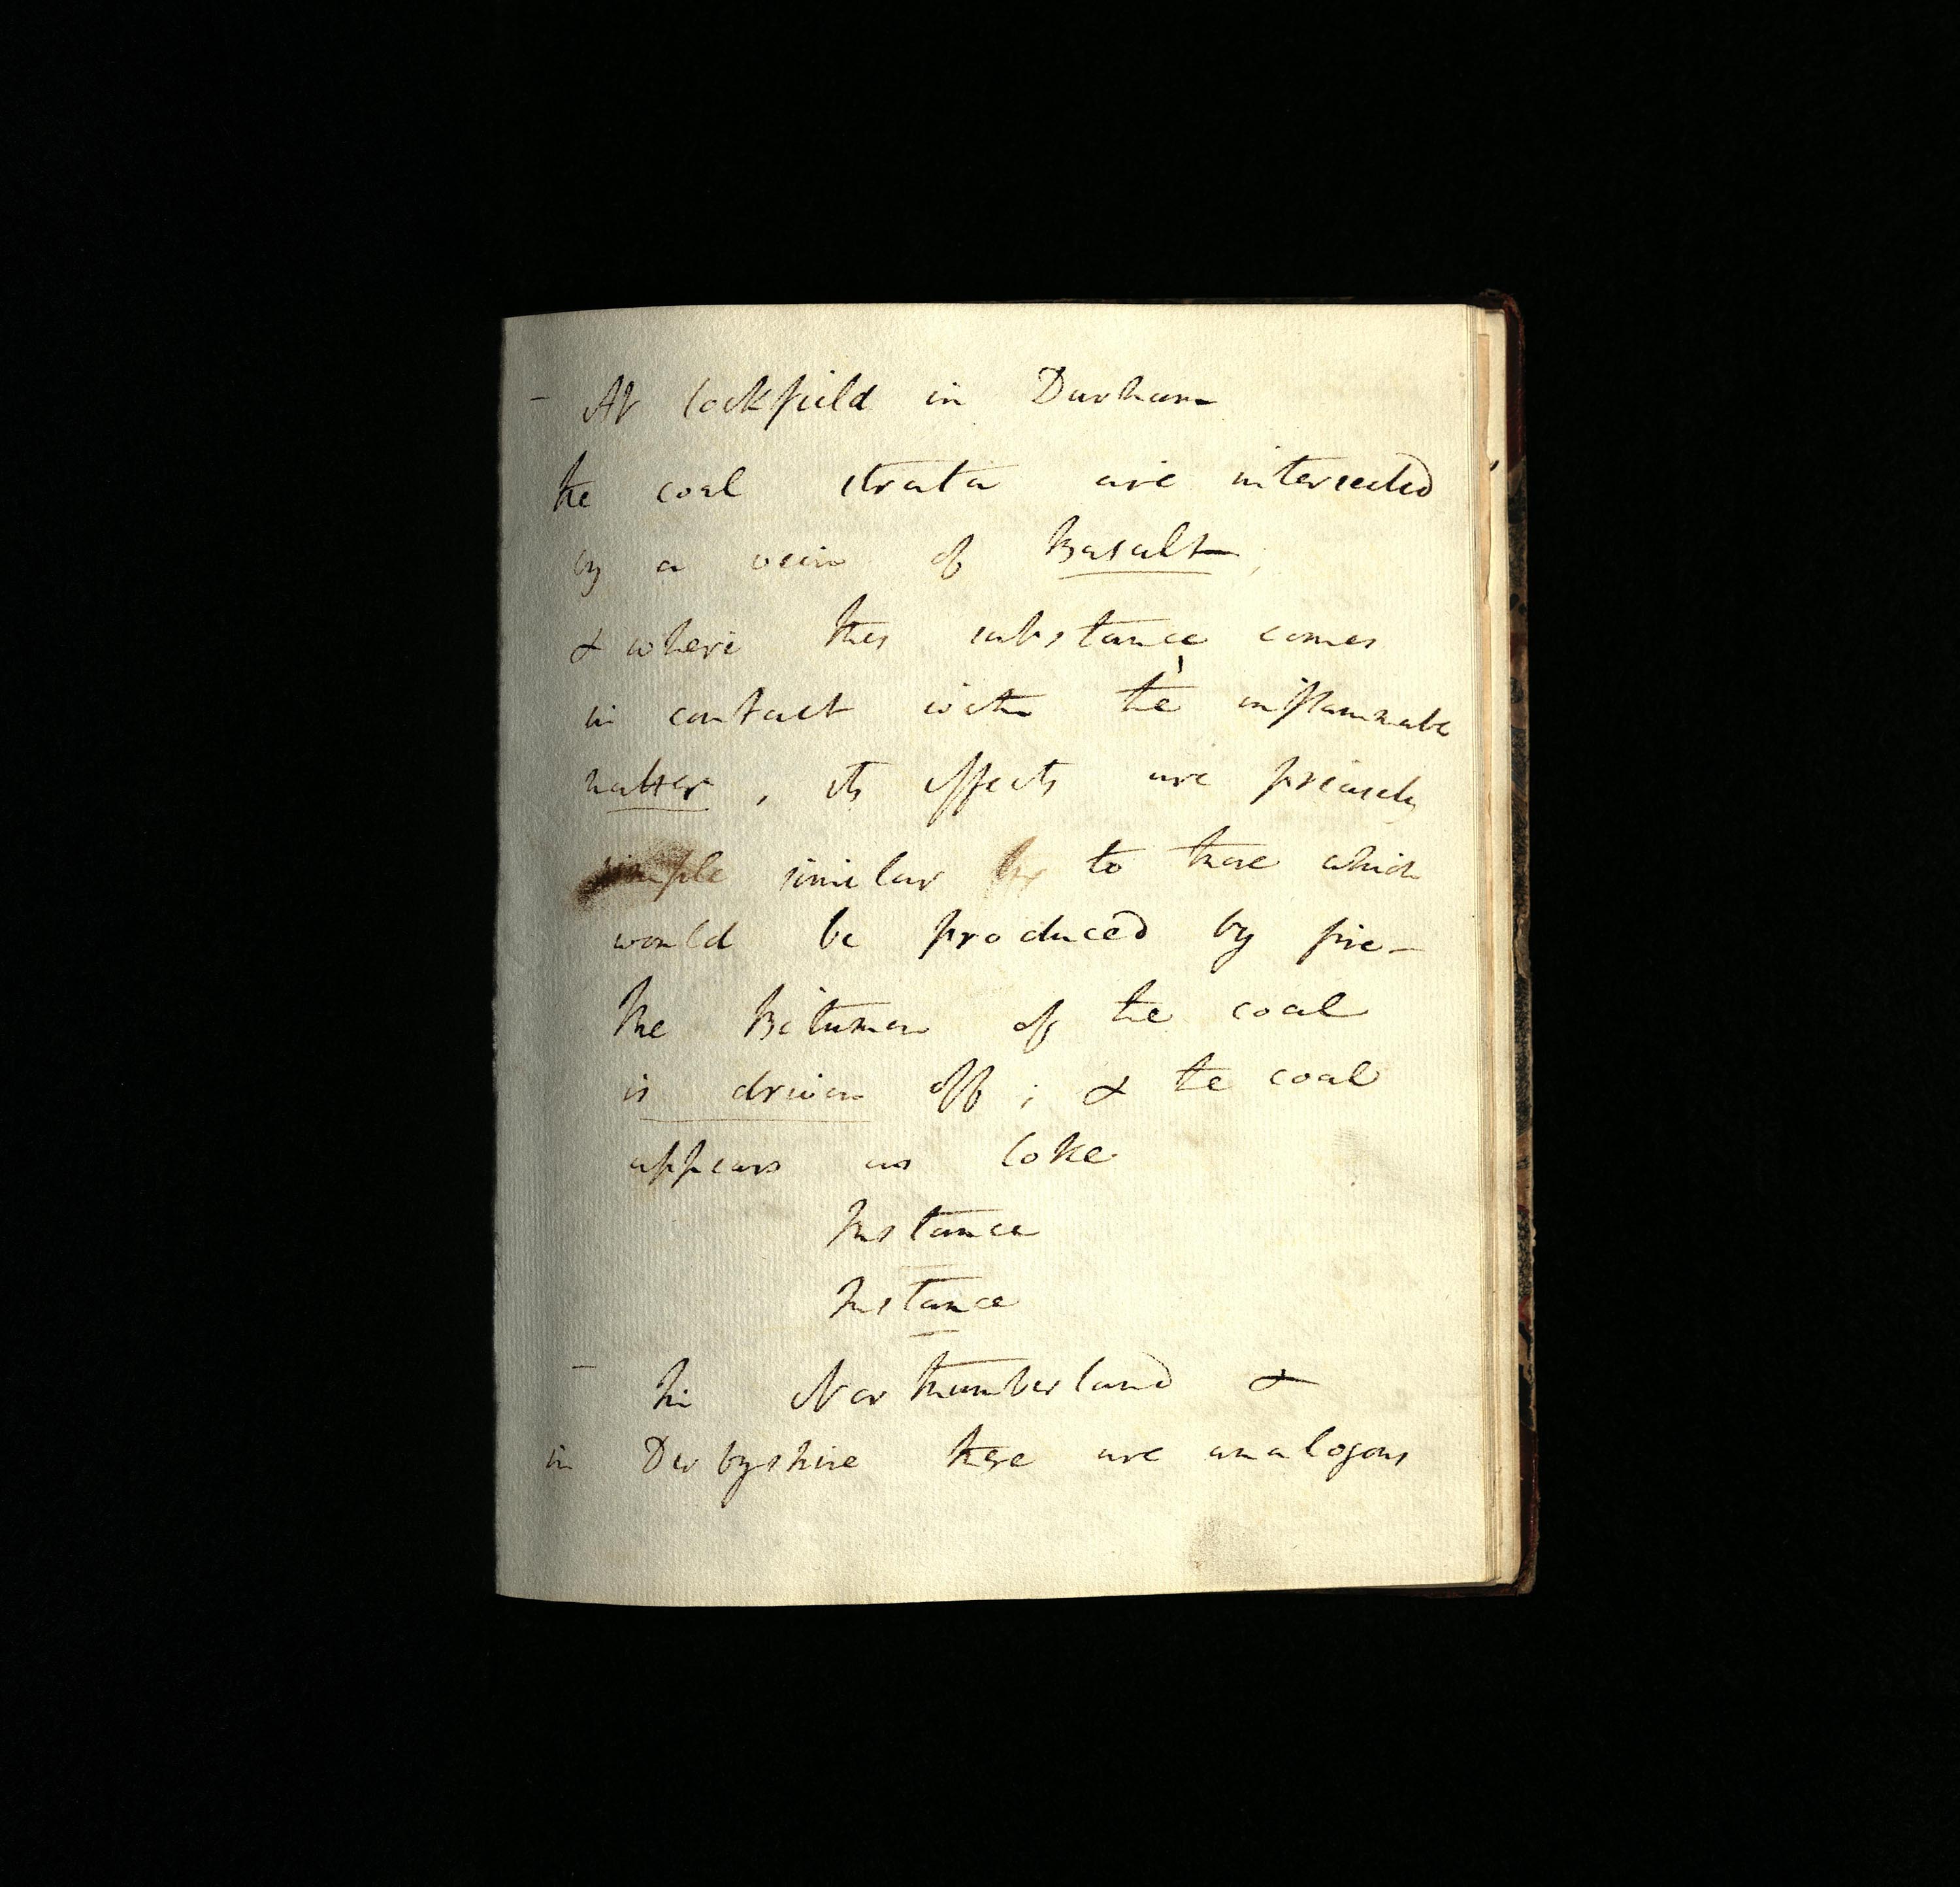 - At Cockfield in Durham
the coal strata are intersected
by a vein of Basalt,
& where this substance comes
in contact with the inflammable
matter, its effects are precisely
similar to those which
would be produced by fire -
The Bitumen of the coal
is driven off; & the coal
appears as Coke
Instance
Instance
- In Northumberland &
in Derbyshire there are analogous